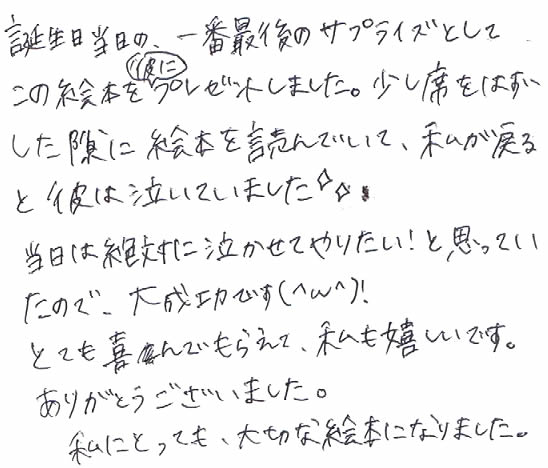 誕生日当日の、一番最後のサプライズとして
この絵本を彼にプレゼントしました。少し席をはずい
した隙に絵本を読んでいて、私が戻る
と彼は泣いていました☆☆
当日は絶対に泣かせてやりたい!と思ってい
たので、大成功です(^ω^)!
とても喜んでもらえて、私も嬉しいです。
ありがとうございました。
私にとっても、大切な絵本になりました。